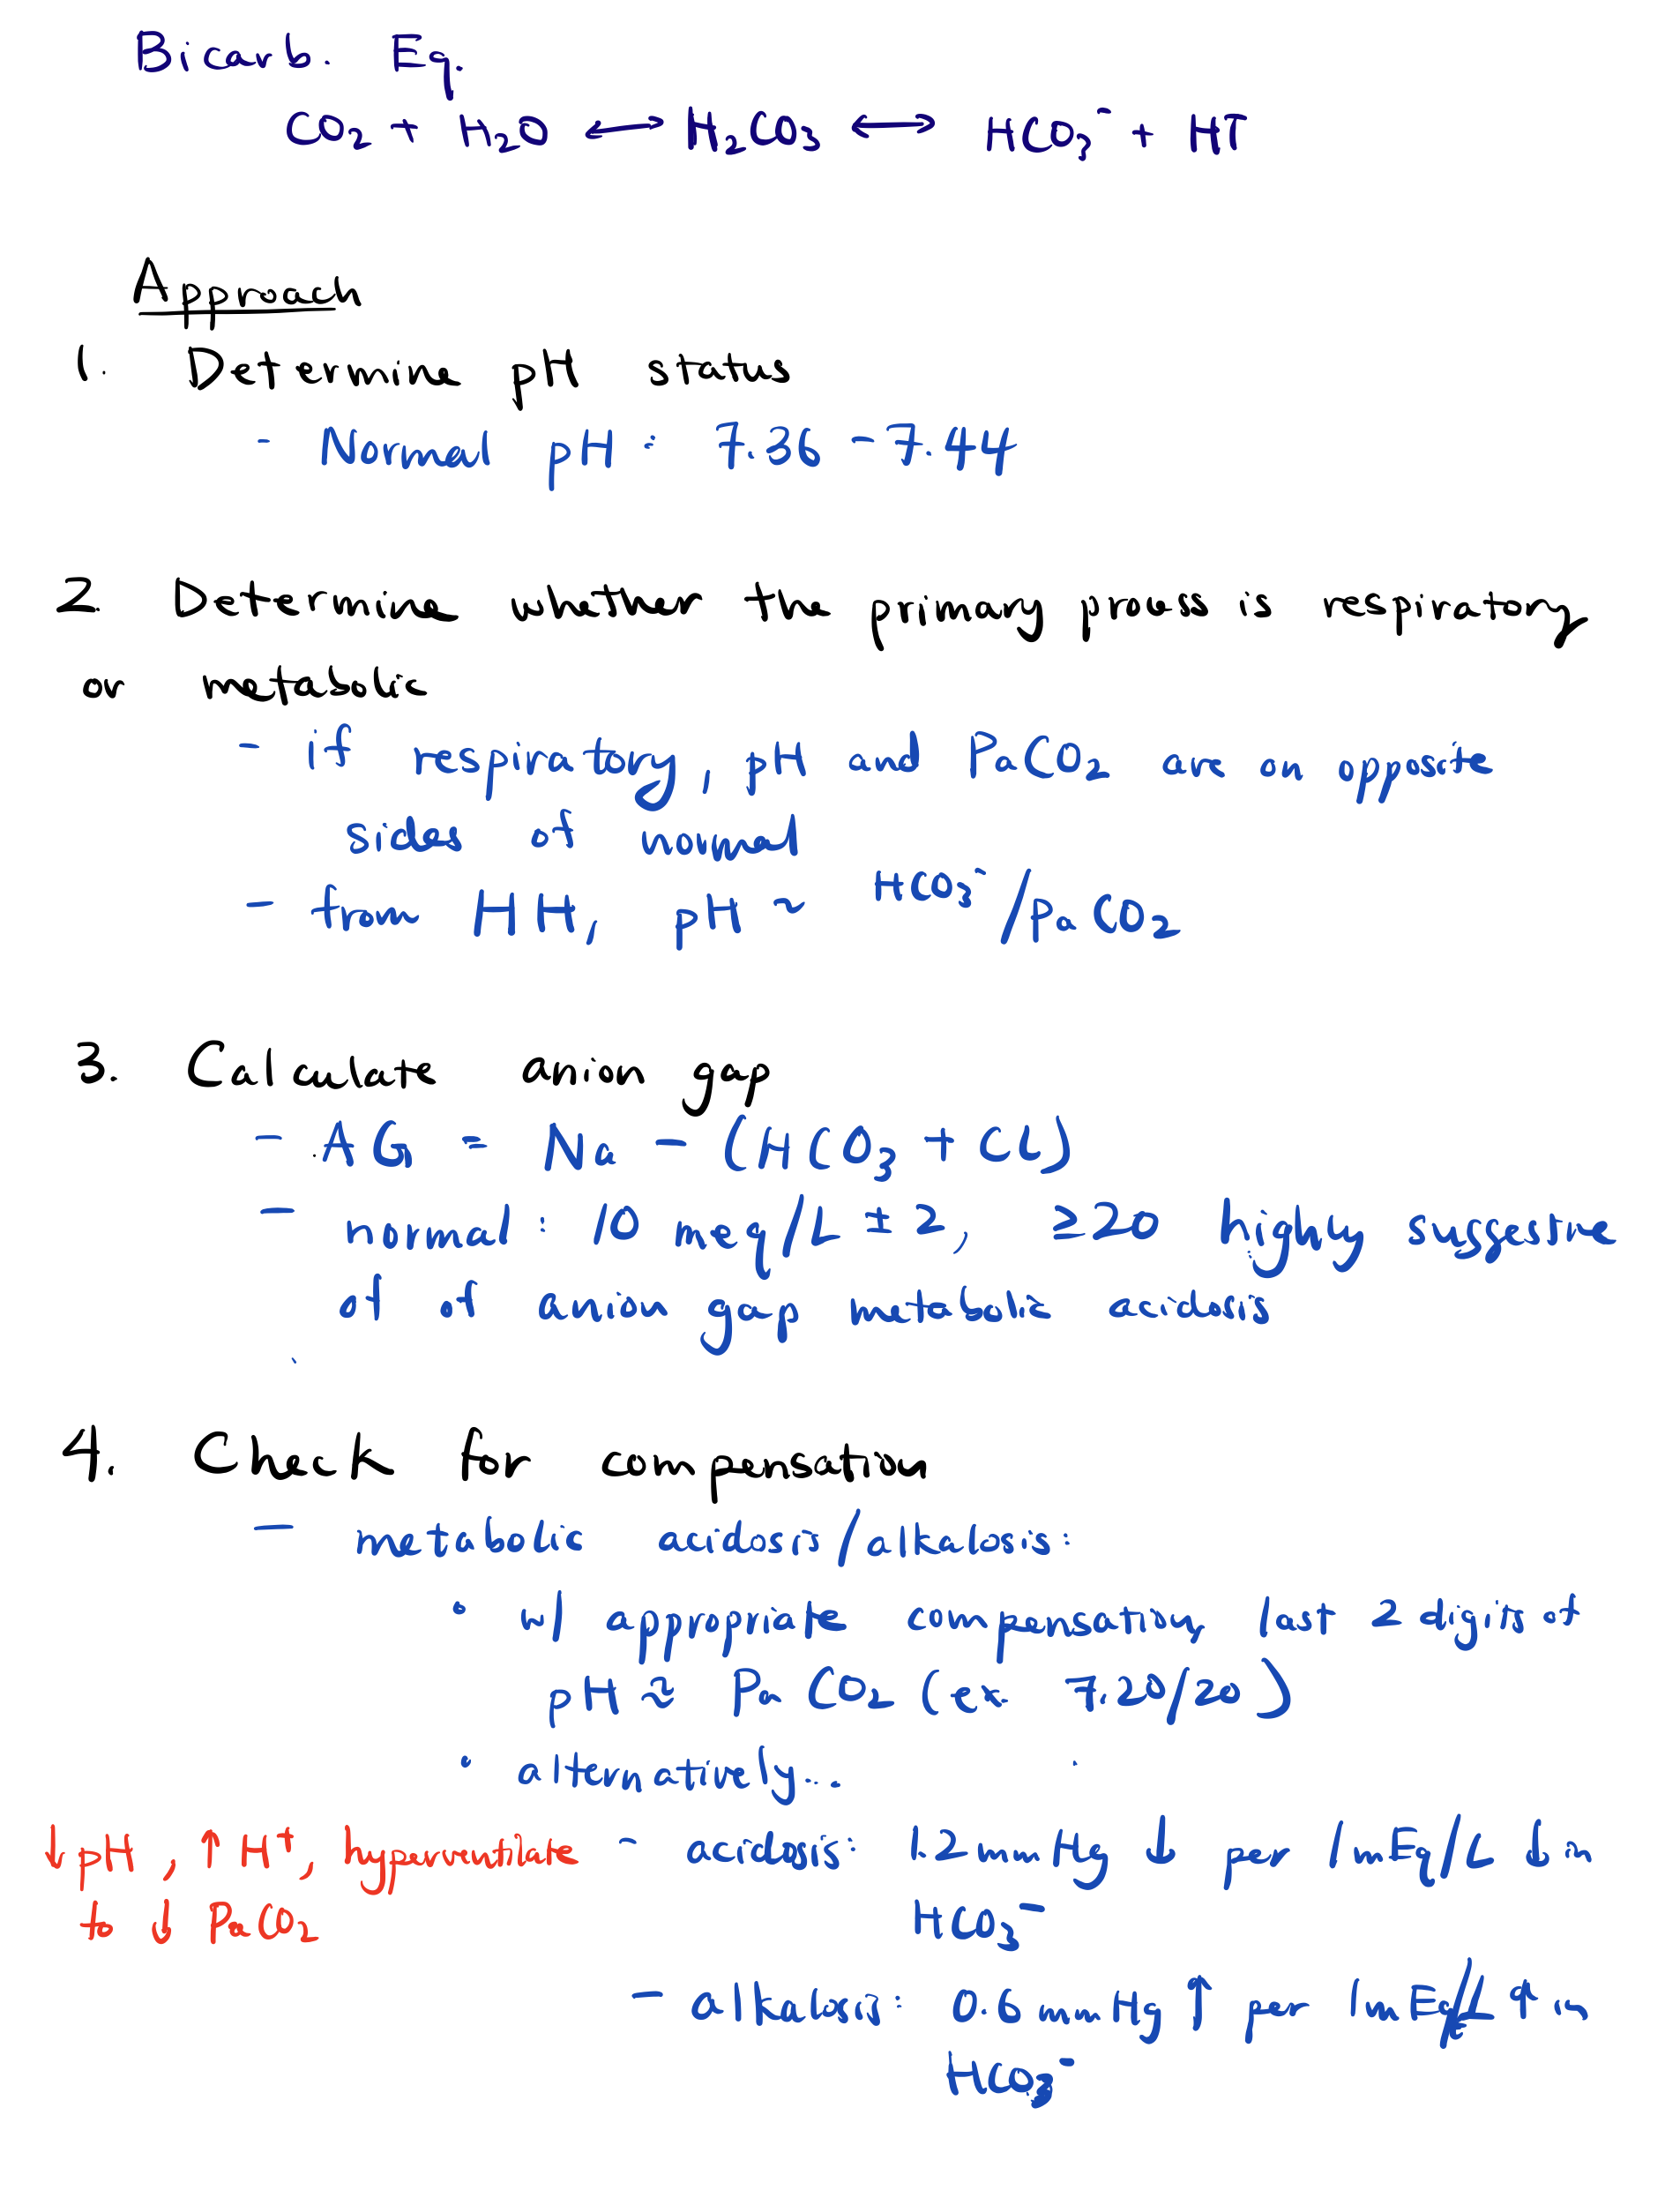 Bicarb. Eq.
CO₂ + H₂O ⟷ H₂CO₃ ⟷ HCO₃⁻ + H⁺
Approach
1. Determine pH status
- Normal pH : 7.36 - 7.44
2. Determine whether the primary process is respiratory
or metabolic
- if respiratory, pH and PaCO₂ are on opposite
sides of normal
- from HH, pH ~ HCO₃⁻/PaCO₂
3. Calculate anion gap
- AG = Na - (HCO₃ + Cl)
- normal: 10 meq/L ± 2, ≥20 highly suggestive
of of anion gap metabolic acidosis
4. Check for compensation
- metabolic acidosis/alkalosis:
• w/ appropriate compensation, last 2 digits of
pH ≈ PaCO₂ (ex. 7.20/20)
• alternatively...
↓pH, ↑H⁺, hyperventilate - acidosis: 1.2 mmHg ↓ per 1mEq/L ↓ in
to ↓ PaCO₂ HCO₃⁻
- alkalosis: 0.6 mmHg ↑ per 1mEq/L ↑ in
HCO₃⁻